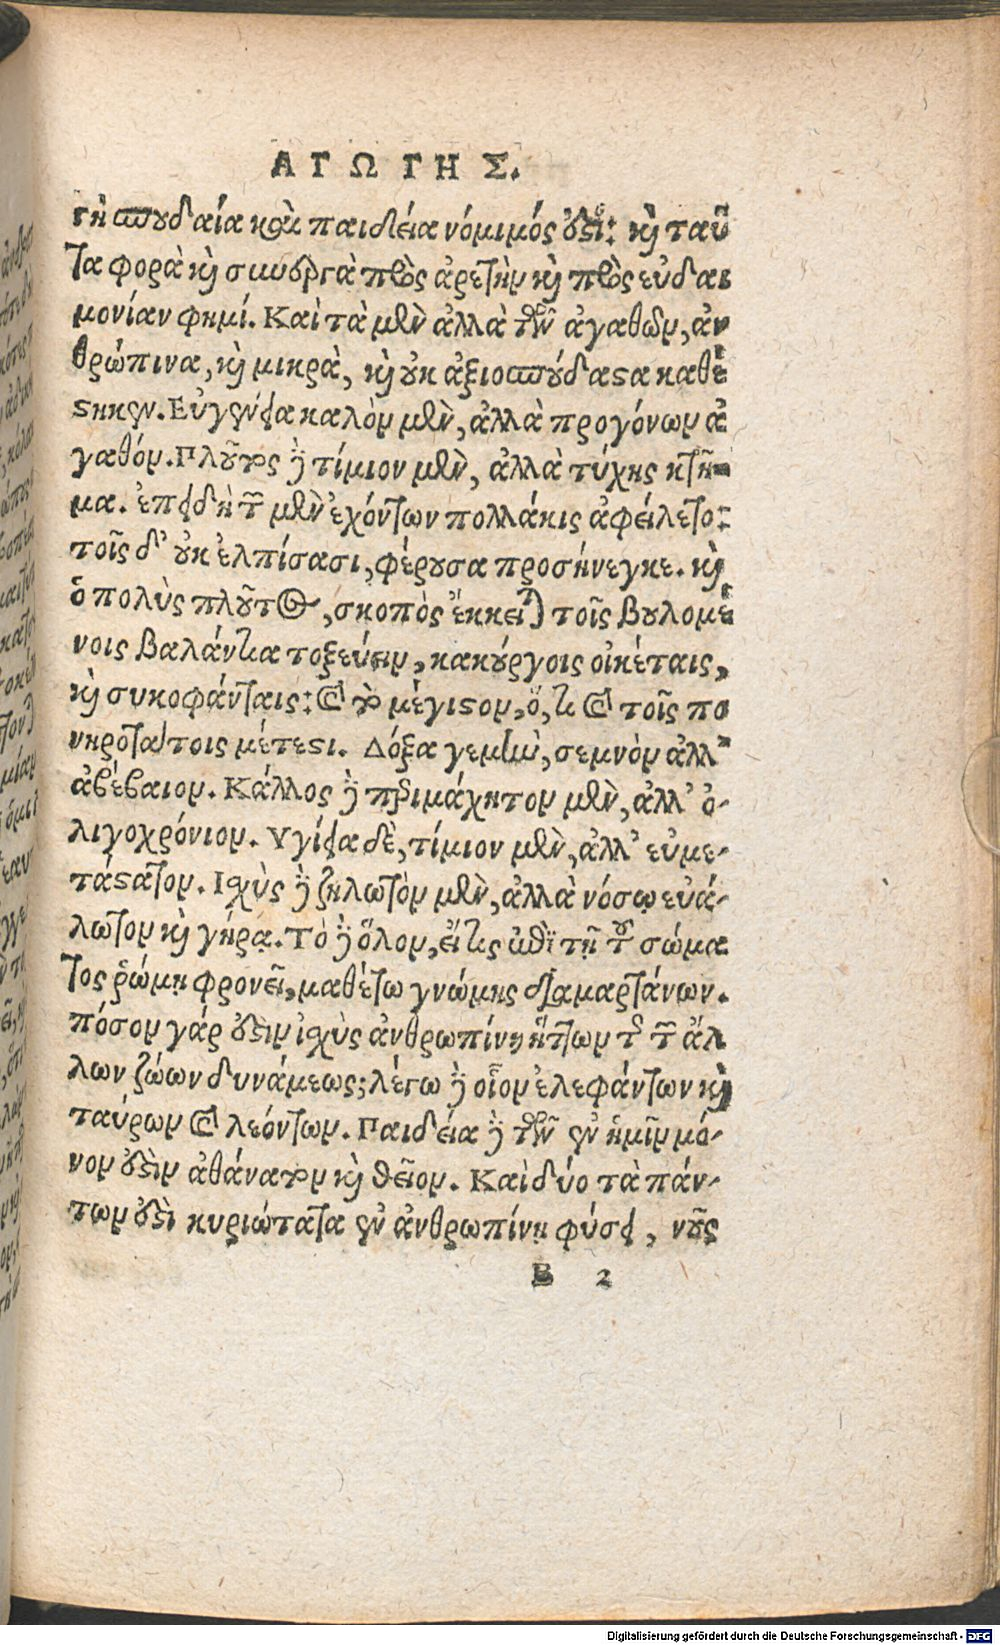 ΑΓΩΓΗΣ.
γὴ σπουδαία καὶ παιδεία νόμιμός ἐστι: καὶ ταῦ
τα φορὰ καὶ συνεργὰ πρὸς ἀρετὴν καὶ πρὸς εὐδαι
μονίαν φημί. Καὶ τὰ μὲν ἄλλα τῶν ἀγαθῶν, ἀν
θρώπινα, καὶ μικρὰ, καὶ οὐκ ἀξιοσπούδαστα καθέ
στηκεν. Εὐγένεια καλὸν μὲν, ἀλλὰ προγόνων ἀ
γαθόν. Πλοῦτος δὲ τίμιον μὲν, ἀλλὰ τύχης κτῆ-
μα. ἐπειδὴ τῶν μὲν ἐχόντων πολλάκις ἀφείλετο:
τοῖς δ' οὐκ ἐλπίσασι, φέρουσα προσήνεγκε. καὶ
ὁ πολὺς πλοῦτος, σκοπὸς ἔκκειται τοῖς βουλομέ
νοις βαλάντια τοξεύειν, κακούργοις οἰκέταις,
καὶ συκοφάνταις: καὶ τὸ μέγιστον, ὅ, τι καὶ τοῖς πο
νηροτάτοις μέτεστι. Δόξα γεμὴν, σεμνὸν ἀλλ'
ἀβέβαιον. Κάλλος δὲ περιμάχητον μὲν, ἀλλ' ὀ-
λιγοχρόνιον. Υγίεια δὲ, τίμιον μὲν, ἀλλ' εὐμε-
τάστατον. Ισχὺς δὲ ζηλωτὸν μὲν, ἀλλὰ νόσῳ εὐά-
λωτον καὶ γήρᾳ. Τὸ δὲ ὅλον, εἴ τις ἐπὶ τῇ τοῦ σώμα
τος ῥώμῃ φρονεῖ, μαθέτω γνώμης διαμαρτάνων.
πόσον γάρ ἐστιν ἰσχὺς ἀνθρωπίνη ἥττων τῆς τῶν ἄλ
λων ζώων δυνάμεως; λέγω δὲ οἷον ἐλεφάντων καὶ
ταύρων καὶ λεόντων. Παιδεία δὲ τῶν ἐν ἡμῖν μό-
νον ἐστὶν ἀθάνατον καὶ θεῖον. Καὶ δύο τὰ πάν-
των ἐστὶ κυριώτατα ἐν ἀνθρωπίνῃ φύσει, νοῦς
B 2
Digitalisierung gefördert durch die Deutsche Forschungsgemeinschaft - DFG